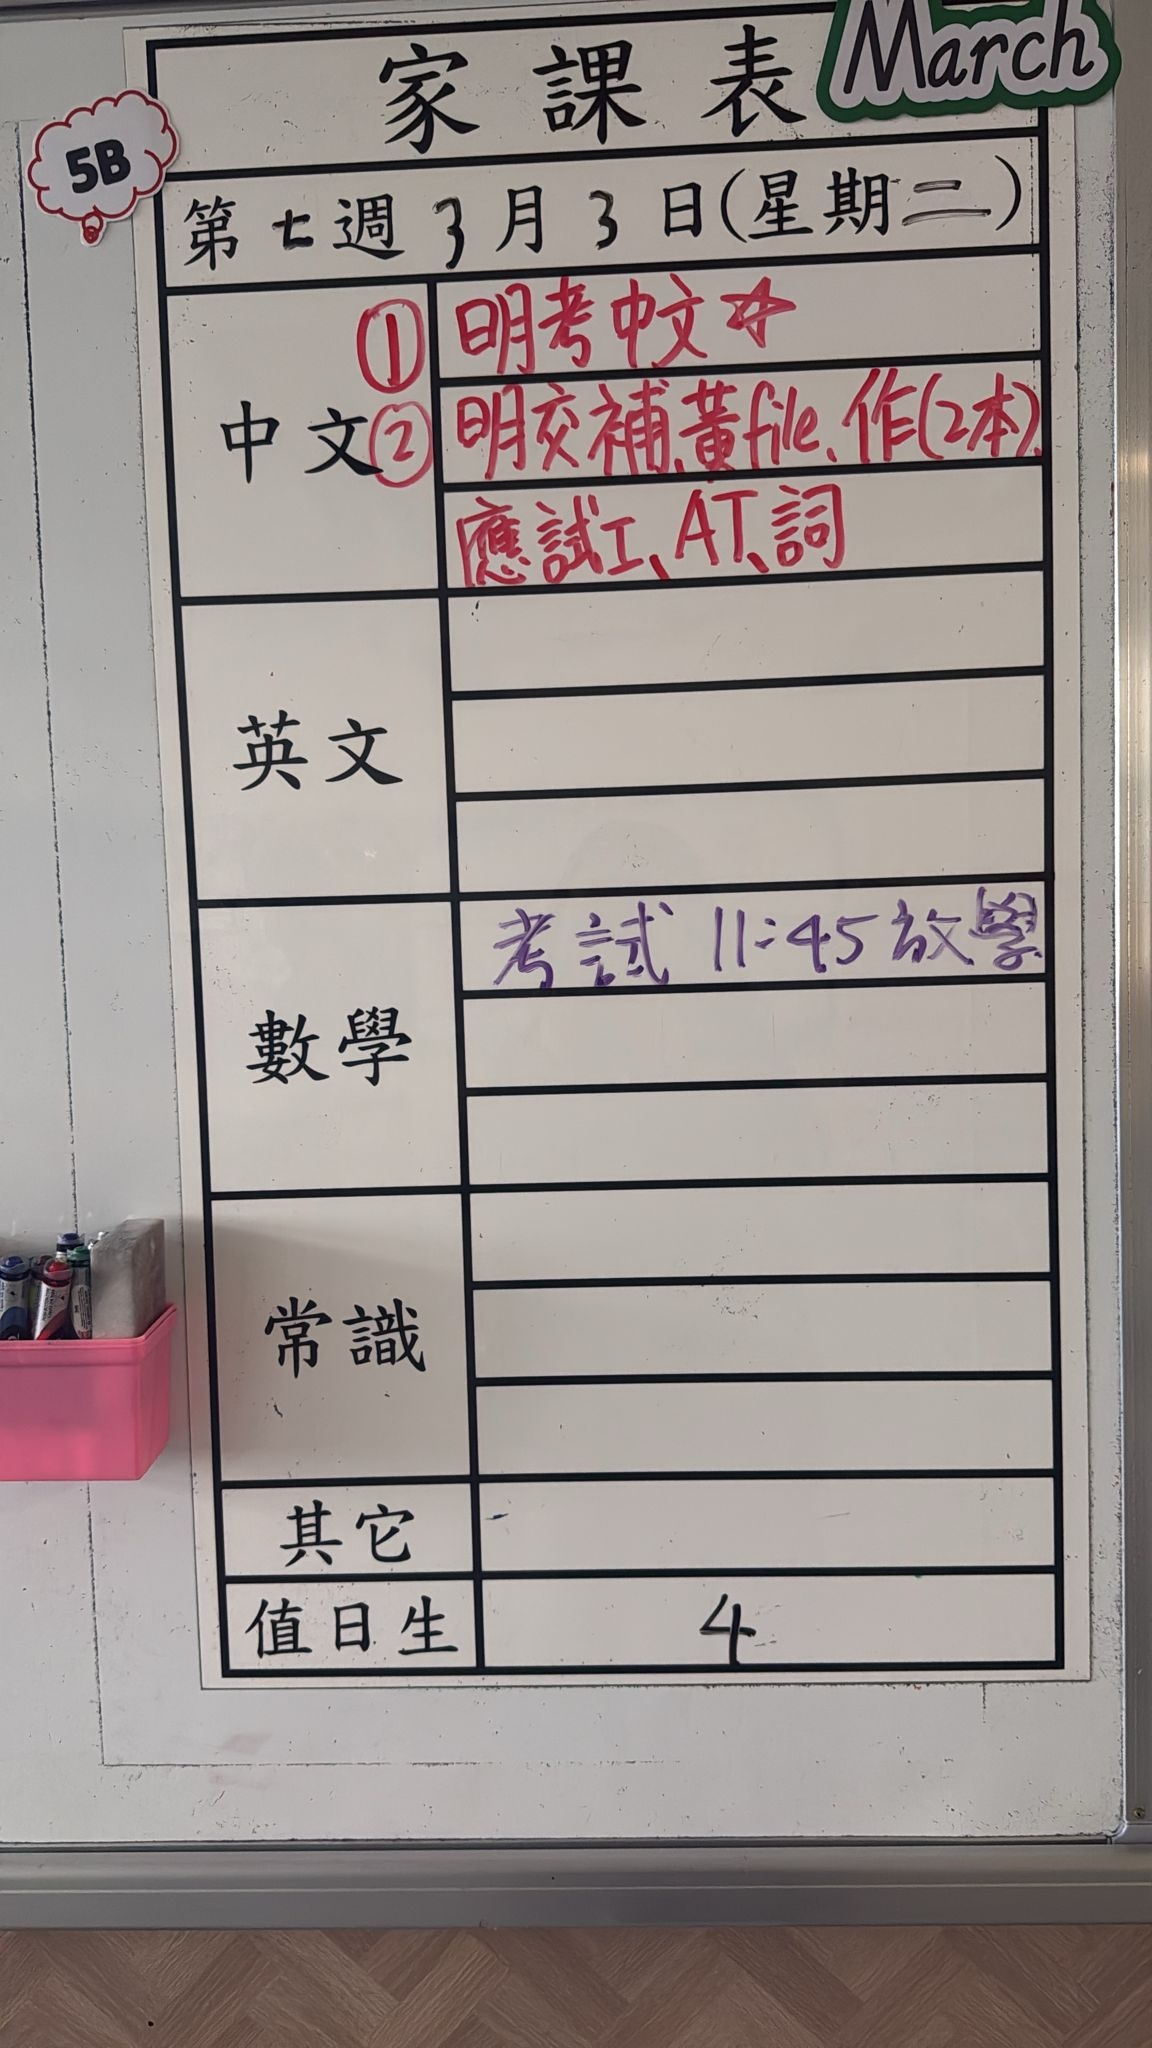 March
家課表
5B
第七週3月3日(星期二)
中文
① 明考中文☆
② 明交補、黃file、作(2本)、
應試工、AT、詞
英文
數學
考試 11:45放學
常識
其它
值日生 4